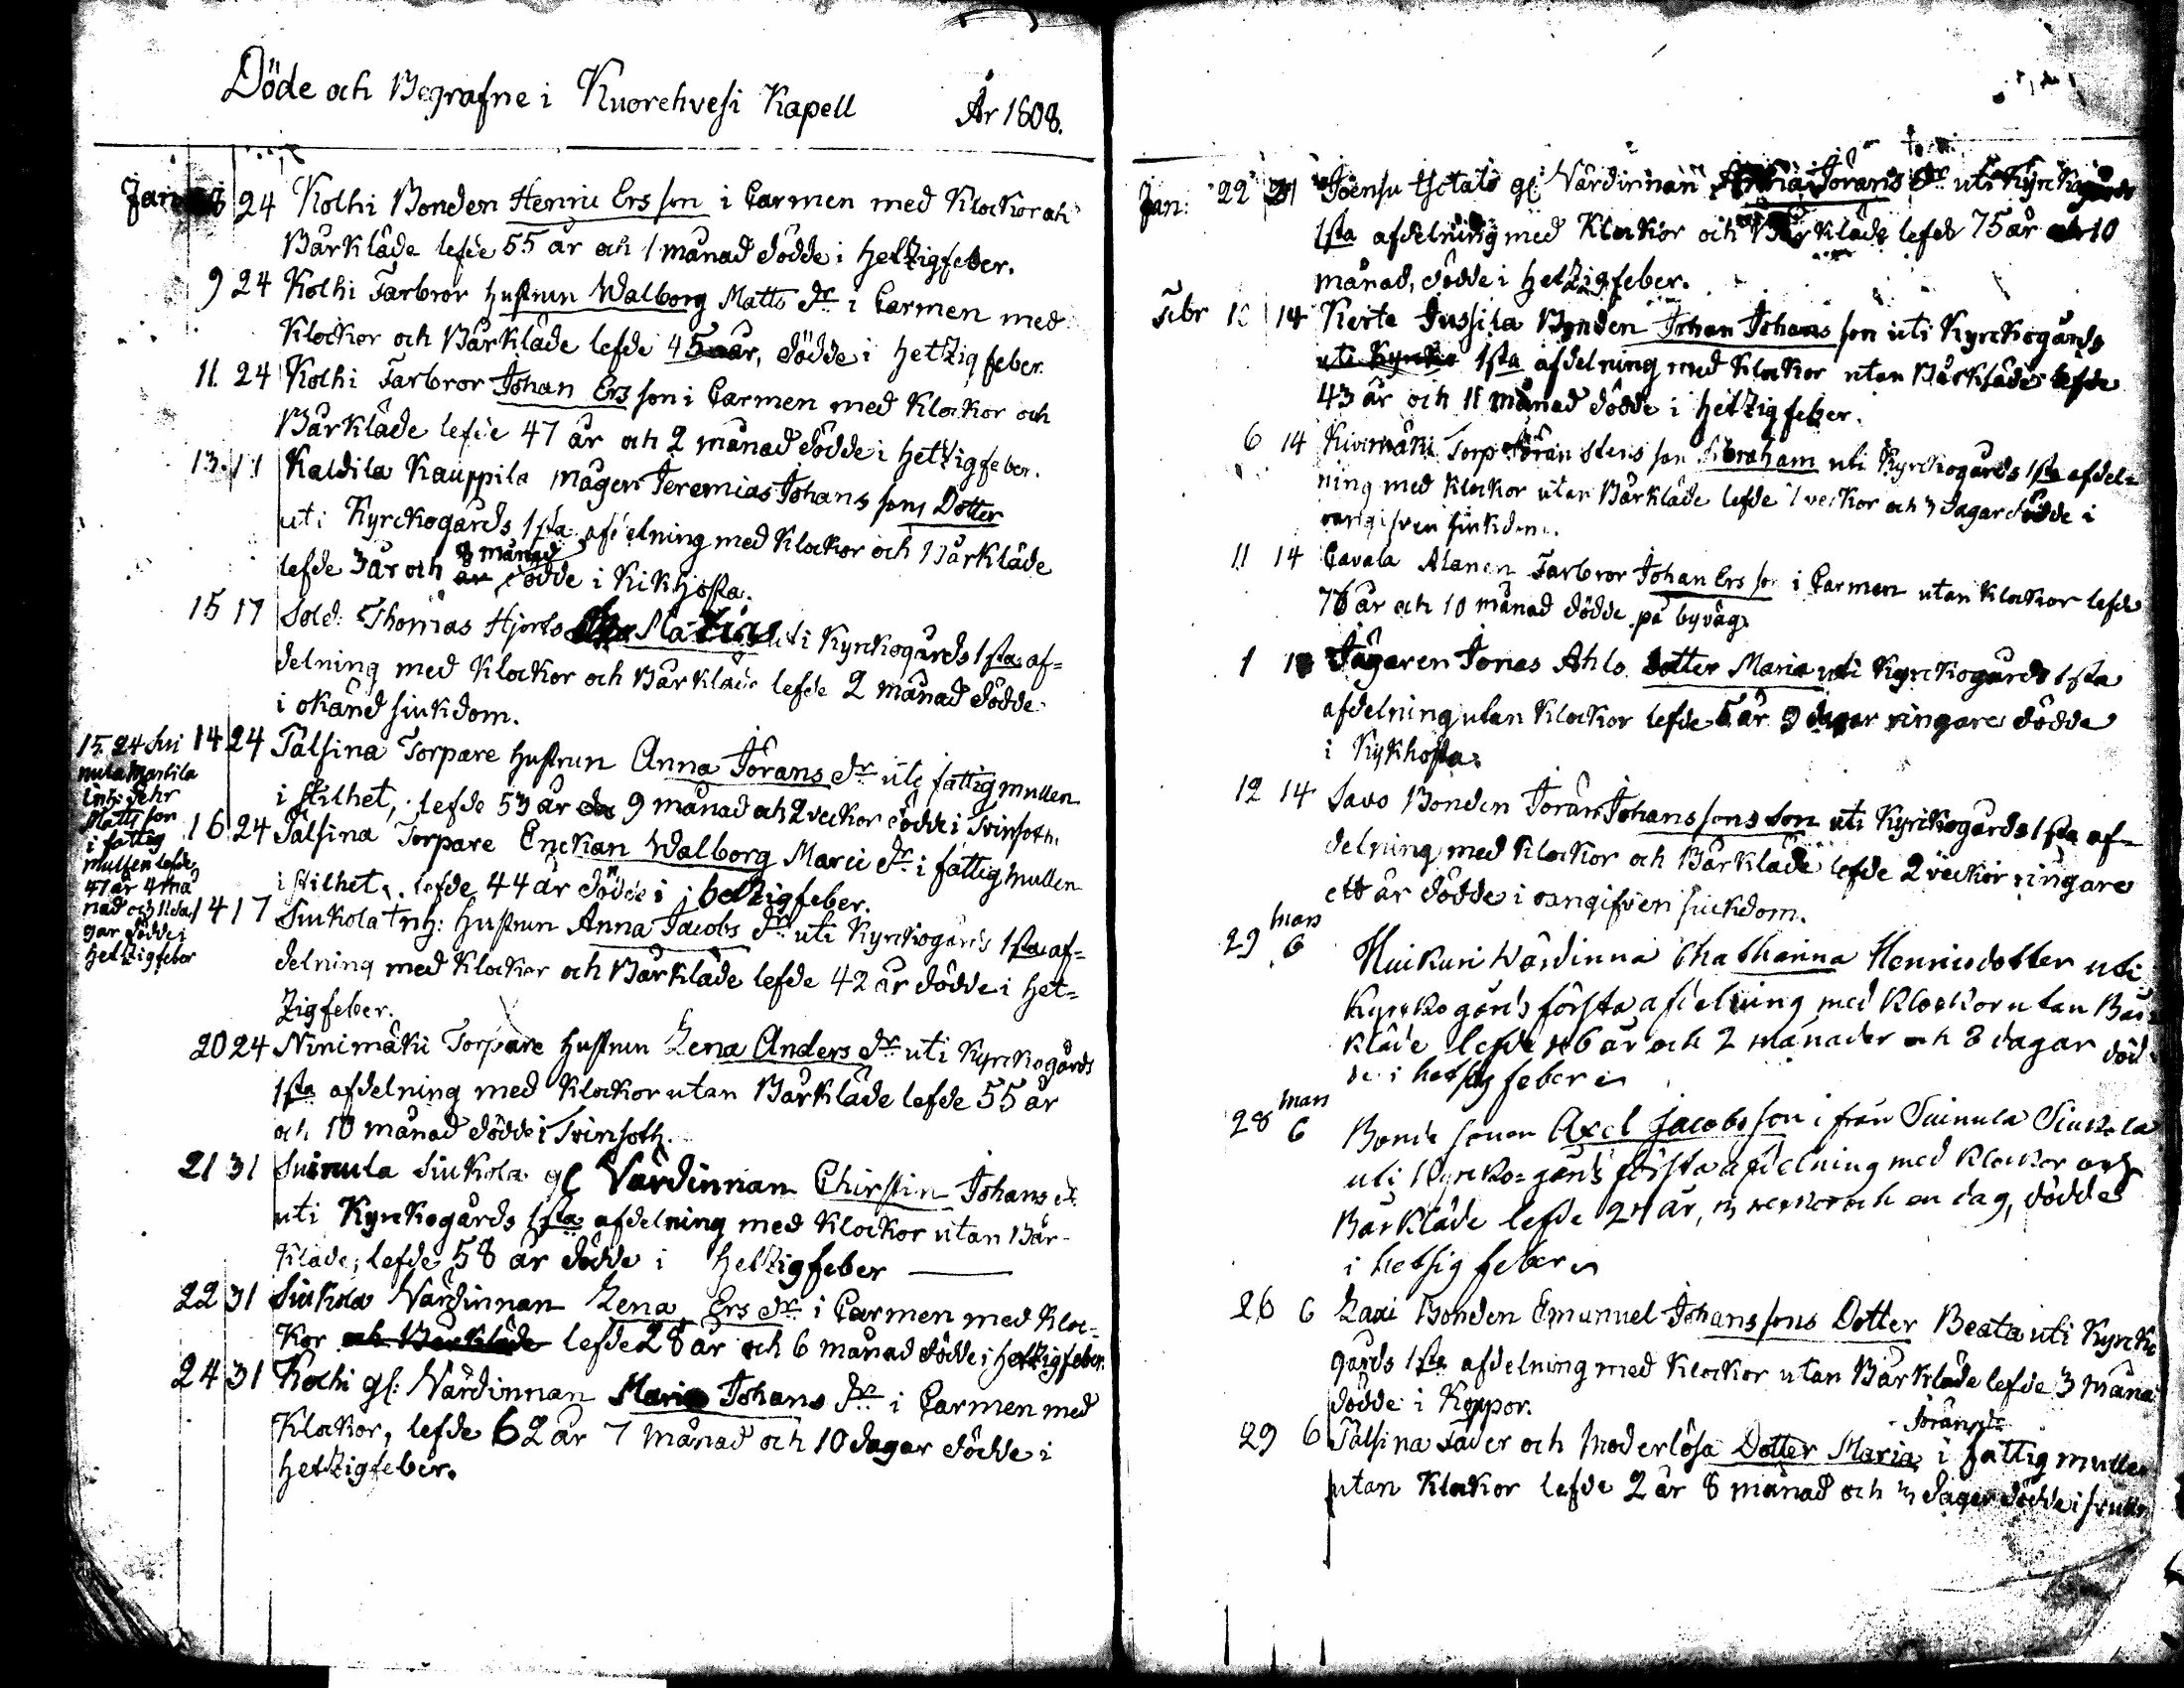 Döde och Begrafne i Kuorehvesi Kapell År 1808.
Jan 8 24 Kolhi Bonden Henric Ers son i Carmen med Klockor och
Bårkläde lefde 55 år och 1 månad dödde i hetzigfeber.
9 24 Kolhi Farbror hustrun Walborg Matts dr i Carmen med
Klockor och Bårkläde lefde 45 år, dödde i hetzigfeber
11 24 Kolhi Farbror Johan Ers son i Carmen med Klockor och
Bårkläde lefde 47 år och 2 månad dödde i hetzigfeber.
13 17 Kaldila Kauppila mågen Jeremias Johans sons Dotter
uti Kyrckogårds 1sta afdelning med Klockor och Bårkläde
lefde 3 år och 8 månad dödde i Kikhosta.
15 17 Sold: Thomas Hjorts Matias uti Kyrckogårds 1sta af=
delning med Klockor och Bårkläde lefde 2 månad dödde
i okänd siukdom.
14 24 Pälsina Torpare hustrun Anna Jörans dr uti fattigmullen
i stilhet, lefde 53 år 9 månad och 2 veckor dödde i Tvinsoth.
15 24 Sui
nula Marttila
Inh: Pehr
Matts son
i fattig
mullen lefde
47 år 4 må
nad och 11 da
gar dödde i
hetzigfeber
16 24 Pälsina Torpare Enckan Walborg Marci dr i fattigmullen
i stilhet, lefde 44 år dödde i hetzigfeber.
14 17 Siukola Inh: hustrun Anna Jacobs dr uti Kyrckogårds 1sta af=
delning med Klockor och Bårkläde lefde 42 år dödde i het=
zigfeber.
20 24 Ninimäki Torpare hustrun Lena Anders dr uti Kyrckogårds
1sta afdelning med Klockor utan Bårkläde lefde 55 år
och 10 månad dödde i Tvinsoth.
21 31 Suinula Siukola gl Värdinnan Chirstin Johans dr
uti Kyrckogårds 1sta afdelning med Klockor utan Bår-
kläde, lefde 58 år dödde i hetzigfeber
22 31 Siukola Värdinnan Lena Ers dr i Carmen med Kloc=
kor och Bårkläde lefde 28 år och 6 månad dödde i hetzigfeber.
24 31 Kolhi gl: Värdinnan Maria Johans dr i Carmen med
Klockor, lefde 62 år 7 månad och 10 dagar dödde i
hetzigfeber.
Jan: 22 31 Joensu gl: Värdinnan Anna Jörans dr uti Kyrckogårds
1sta afdelning med Klockor och Bårkläde lefde 75 år 10
månad, dödde i hetzigfeber.
Febr 14 Kerte Jussila Bonden Johan Johans son uti Kyrckogårds
uti Kyrcko 1sta afdelning med Klockor utan Bårkläde lefde
43 år och 11 månad dödde i hetzigfeber.
6 14 Kivimäki Torp Jöran Stens son Abraham uti Kyrckogårds 1sta afdel=
ning med Klockor utan Bårkläde lefde veckor och 3 dagar dödde i
oangifven siukdom.
11 14 Pavala Alanen Farbror Johan Ers son i Carmen utan Klockor lefde
76 år och 10 månad dödde på byväg
1 Jägaren Jonas Ahls dotter Maria uti Kyrckogårds 1sta
afdelning utan Klockor lefde 5 år 9 dagar ringare dödde
i Kykhosta.
12 14 Savo Bonden Jöran Johans sons Son uti Kyrckogårds 1sta af=
delning med Klockor och Bårkläde lefde 2 veckor ringare
ett år dödde i oangifven siuckdom.
29 mars 6 Huikuri Wärdinna Chatharina Henricsdotter uti
Kyrckogårds första afdelning med Klockor utan Bår
kläde lefde 6 år och 2 månader och 8 dagar död
de i hetsig feber
28 mars 6 Bonde sonen Axel Jacobs son ifrån Suinula Siukola
uti Kyrcko=gårds första afdelning med Klockor och
Bårkläde lefde 24 år, 3 veckor och en dag, dödde
i hetsig feber
26 6 Laxi Bonden Emanuel Johans sons Dotter Beata uti Kyrcko
gårds 1sta afdelning med Klockor utan Bårkläde lefde 3 måna
dödde i Koppor.
29 6 Pälsina Fader och Moderlösa Dotter Maria Jörans dr i fattigmullen
utan Klockor lefde 2 år 8 månad och 3 dagar dödde i